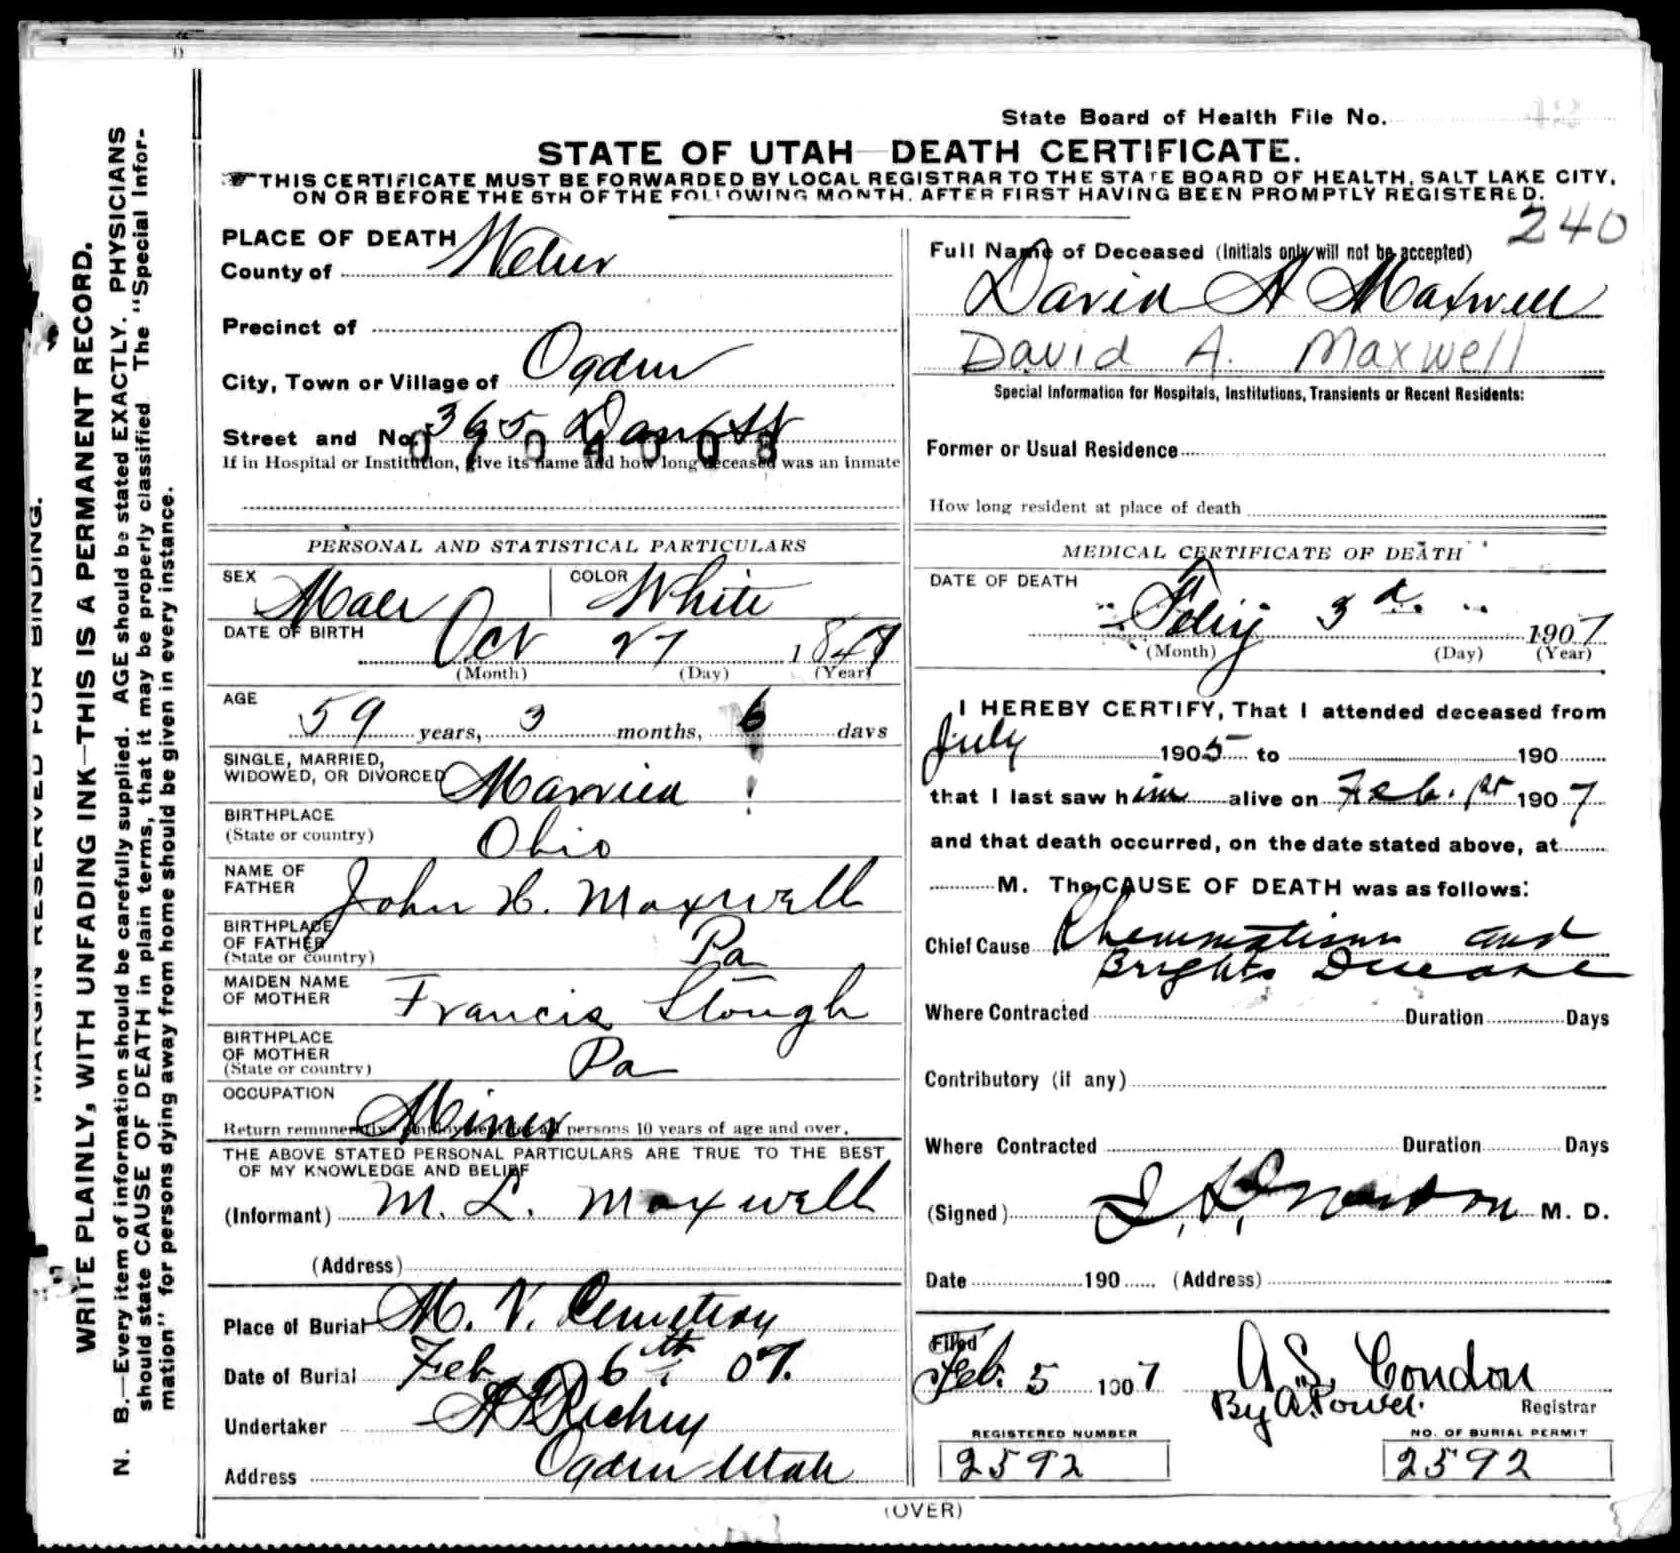 State Board of Health File No.
STATE OF UTAH—DEATH CERTIFICATE.
THIS CERTIFICATE MUST BE FORWARDED BY LOCAL REGISTRAR TO THE STATE BOARD OF HEALTH, SALT LAKE CITY,
ON OR BEFORE THE 5TH OF THE FOLLOWING MONTH, AFTER FIRST HAVING BEEN PROMPTLY REGISTERED.
240
MARGIN RESERVED FOR BINDING.
WRITE PLAINLY, WITH UNFADING INK—THIS IS A PERMANENT RECORD.
N. B.—Every item of information should be carefully supplied. AGE should be stated EXACTLY. PHYSICIANS
should state CAUSE OF DEATH in plain terms, that it may be properly classified. The "Special Infor-
mation" for persons dying away from home should be given in every instance.
PLACE OF DEATH
County of Weber
Precinct of
City, Town or Village of Ogden
Street and No. 365
0704008
If in Hospital or Institution, give its name and how long deceased was an inmate
PERSONAL AND STATISTICAL PARTICULARS
SEX Male COLOR White
DATE OF BIRTH Oct 27 1847
(Month) (Day) (Year)
AGE
59 years, 3 months, 6 days
SINGLE, MARRIED,
WIDOWED, OR DIVORCED Married
BIRTHPLACE
(State or country) Ohio
NAME OF
FATHER John H. Maxwell
BIRTHPLACE
OF FATHER
(State or country) Pa
MAIDEN NAME
OF MOTHER Francis Slough
BIRTHPLACE
OF MOTHER
(State or country) Pa
OCCUPATION
Miner
Return remunerative employment for all persons 10 years of age and over.
THE ABOVE STATED PERSONAL PARTICULARS ARE TRUE TO THE BEST
OF MY KNOWLEDGE AND BELIEF
(Informant) M. L. Maxwell
(Address)
Place of Burial M. V. Cemetery
Date of Burial Feb 6th 07.
Undertaker Richey
Address Ogden Utah
Full Name of Deceased (Initials only will not be accepted)
David A Maxwell
David A. Maxwell
Special Information for Hospitals, Institutions, Transients or Recent Residents:
Former or Usual Residence
How long resident at place of death
MEDICAL CERTIFICATE OF DEATH
DATE OF DEATH
Feby 3d. 1907
(Month) (Day) (Year)
I HEREBY CERTIFY, That I attended deceased from
July 1905 to 190
that I last saw him alive on Feb. 1st 1907
and that death occurred, on the date stated above, at
M. The CAUSE OF DEATH was as follows:
Chief Cause Rheumatism and
Brights Disease
Where Contracted Duration Days
Contributory (if any)
Where Contracted Duration Days
(Signed) M. D.
Date 190 (Address)
Filed
Feb. 5 1907 A. S. Condon
By A. Powell. Registrar
REGISTERED NUMBER
2592
NO. OF BURIAL PERMIT
2592
(OVER)